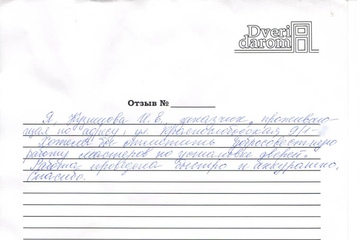 Dveri
darom
Отзыв №
Я, Кузнецова И.В., заказчик, проживаю-
щая по адресу, ул.
Хотела бы отметить добросовестную
работу мастеров по установке дверей.
Работа проведена быстро и аккуратно.
Спасибо.